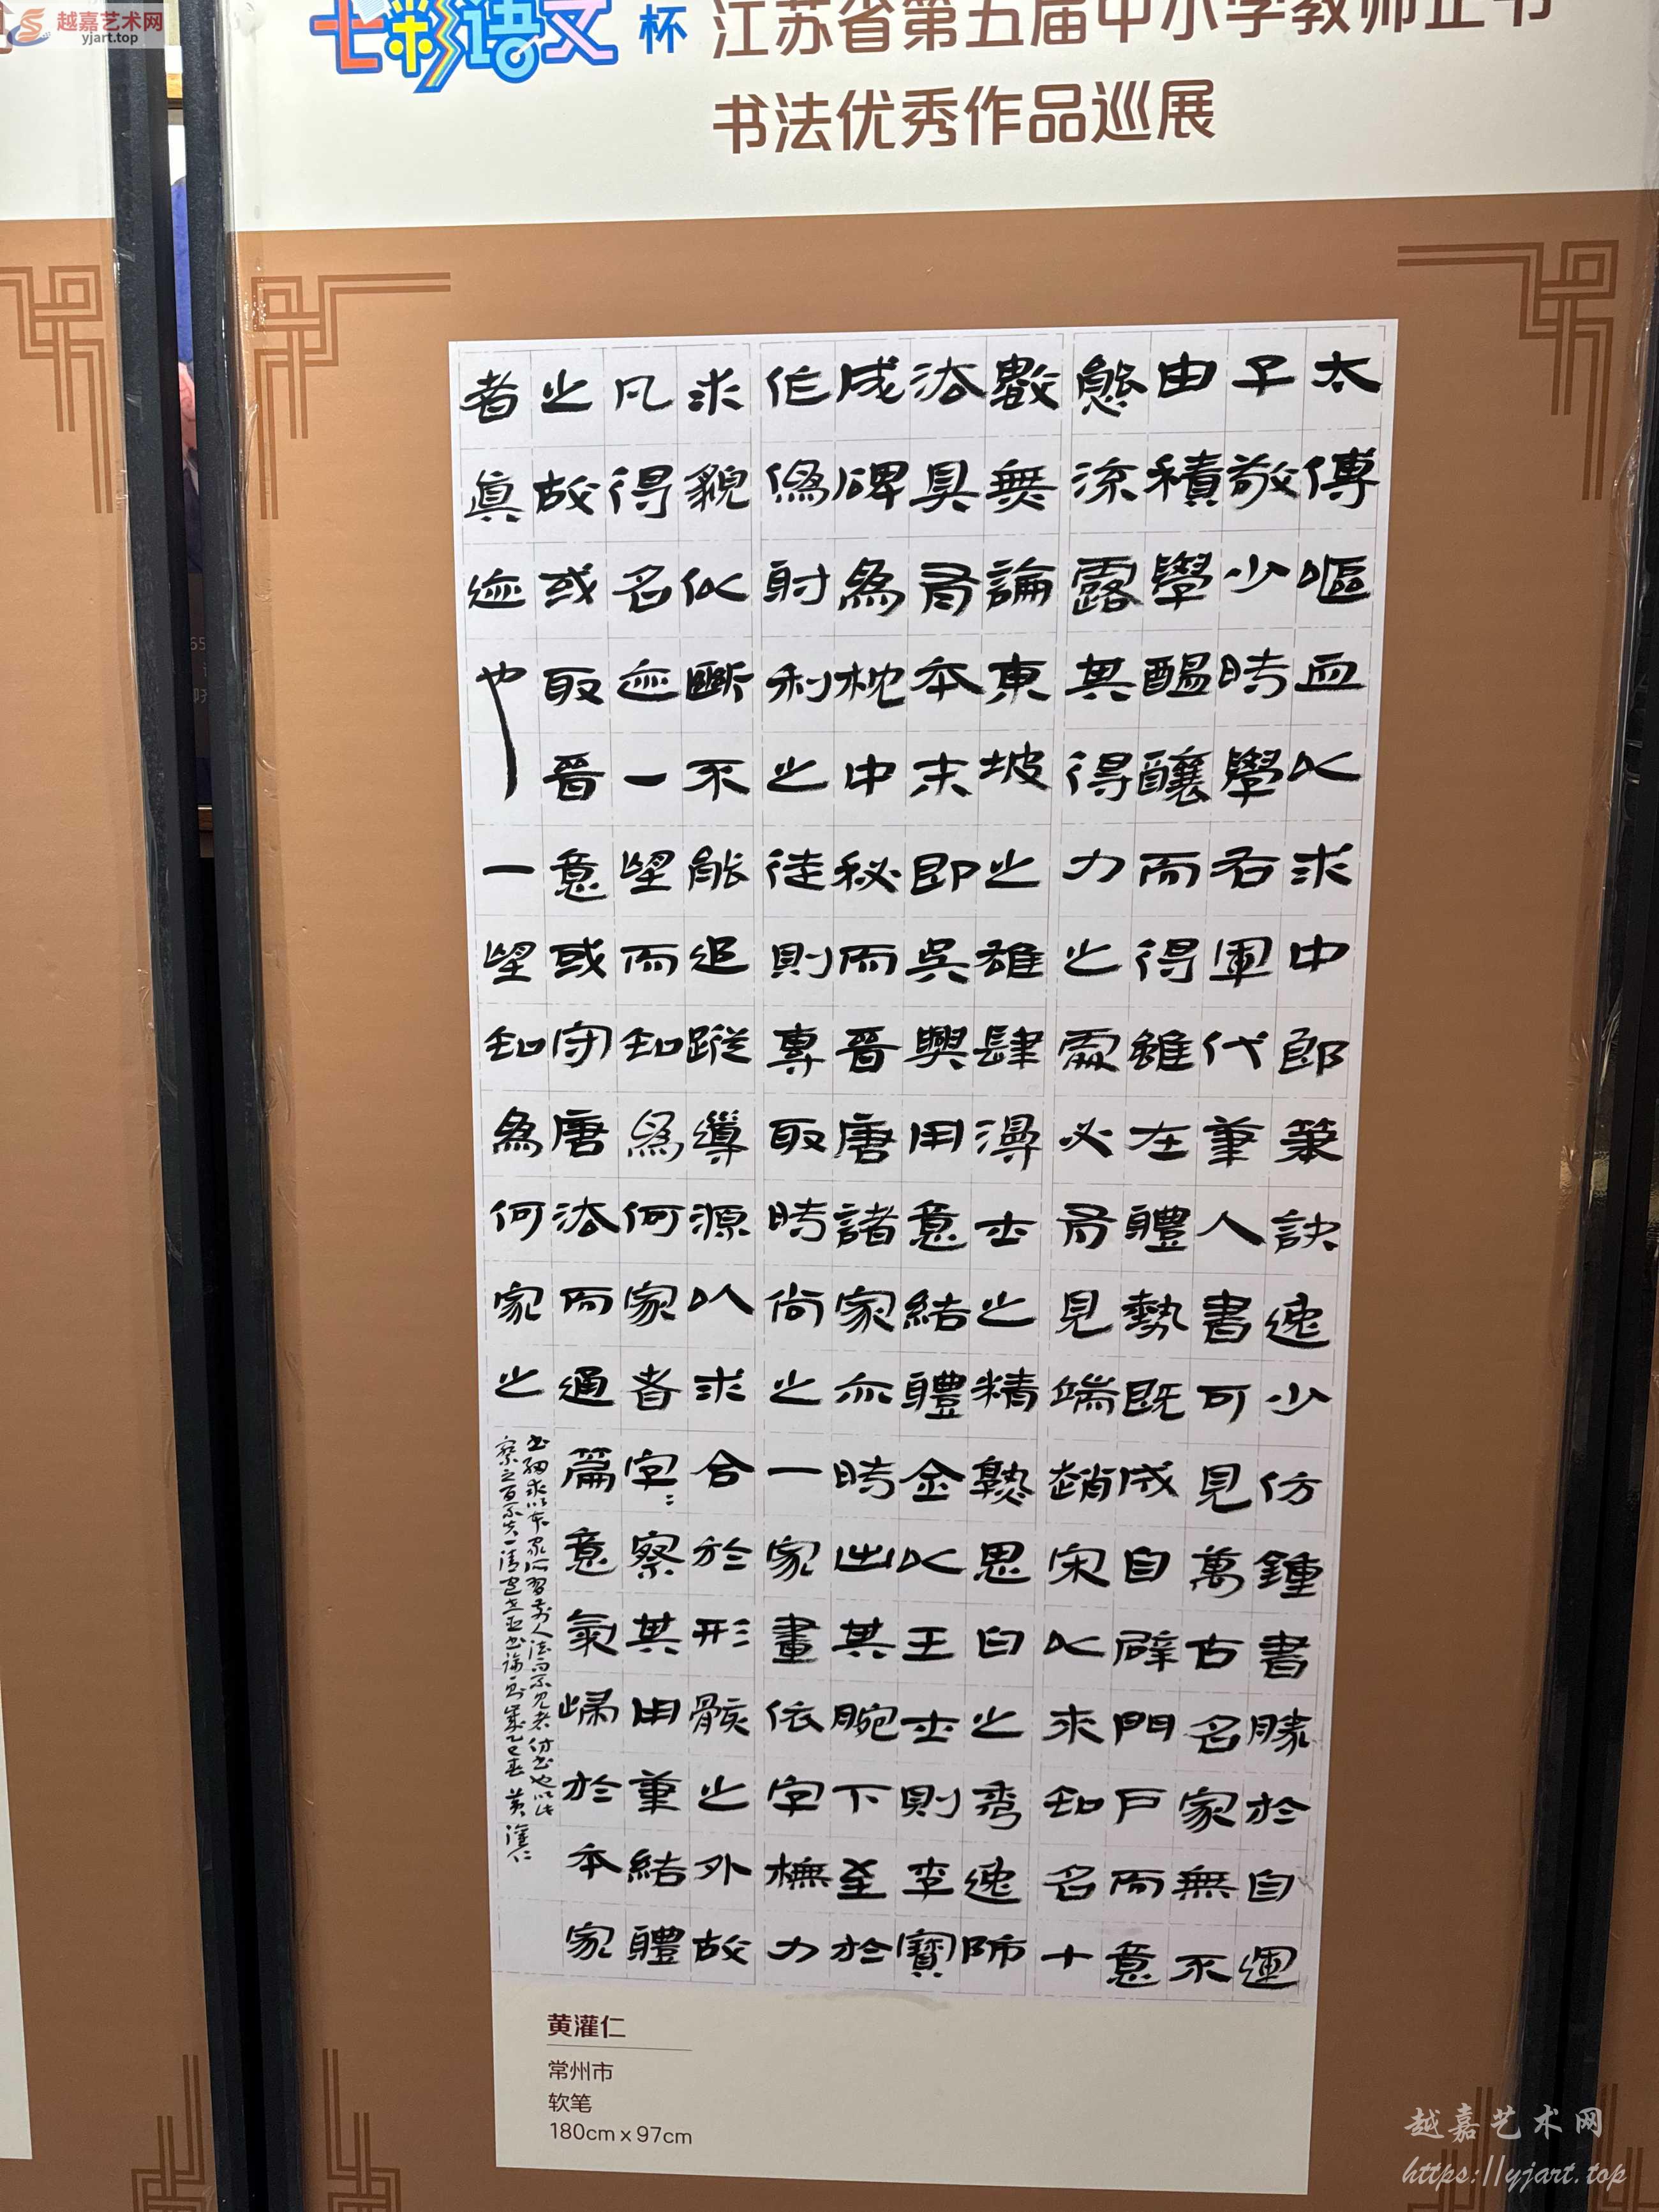 越嘉艺术网
yjart.top
七彩语文 杯 江苏省第五届中小学教师正书
书法优秀作品巡展
太傅嘔血以求中郎筆訣逸少仿鍾書勝於自運
子敬少時學右軍代筆人書可見萬古名家無不
由積學醞釀而得雖在體勢既成自辟門戶而意
態流露其得力之處必有見端趙宋以來知名十
數無論東坡之雄肆漫士之精熟思白之秀逸師
法具有本末即吳興用意結體金以王士則李寶
成碑為枕中秘而晉唐諸家亦時出其腕下至於
作偽射利之徒則專取時尚之一家畫依字橅力
求貌似斷不能追蹤導源以求合於形骸之外故
凡得名迹一望而知為何家者字〻察其用筆結體
之故或取晉意或守唐法而通篇意氣歸於本家
者真迹也一望知為何家之
書細求以本家所習前人法而不見者仿書也以此
察之百不失一清包世臣書論一則歲乙巳春 黃灌仁
黄灌仁
常州市
软笔
180cm x 97cm
越嘉艺术网
https://yjart.top